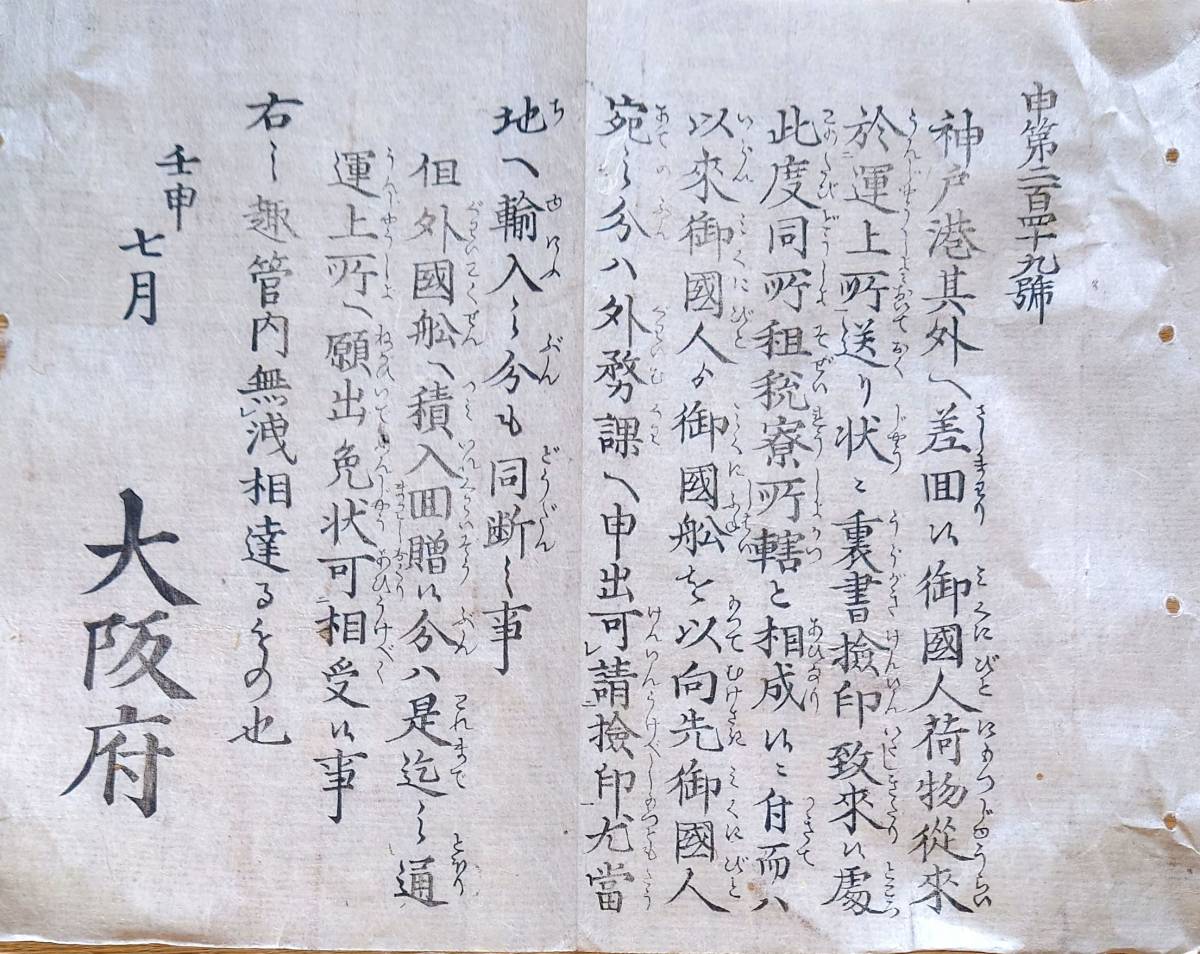 申第二百四十九號
神戸港其外へ差回候御國人荷物從來
於運上所送り状ニ裏書撿印致來候處
此度同所租税寮所轄と相成候ニ付而ハ
以來御國人ゟ御國舩を以向先御國人
宛之分ハ外務課へ申出可請撿印尤當
地へ輸入之分も同断之事
但外國舩へ積入回贈候分ハ是迄之通
運上所へ願出免状可相受候事
右之趣管内無洩相達るもの也
壬申
七月
大阪府